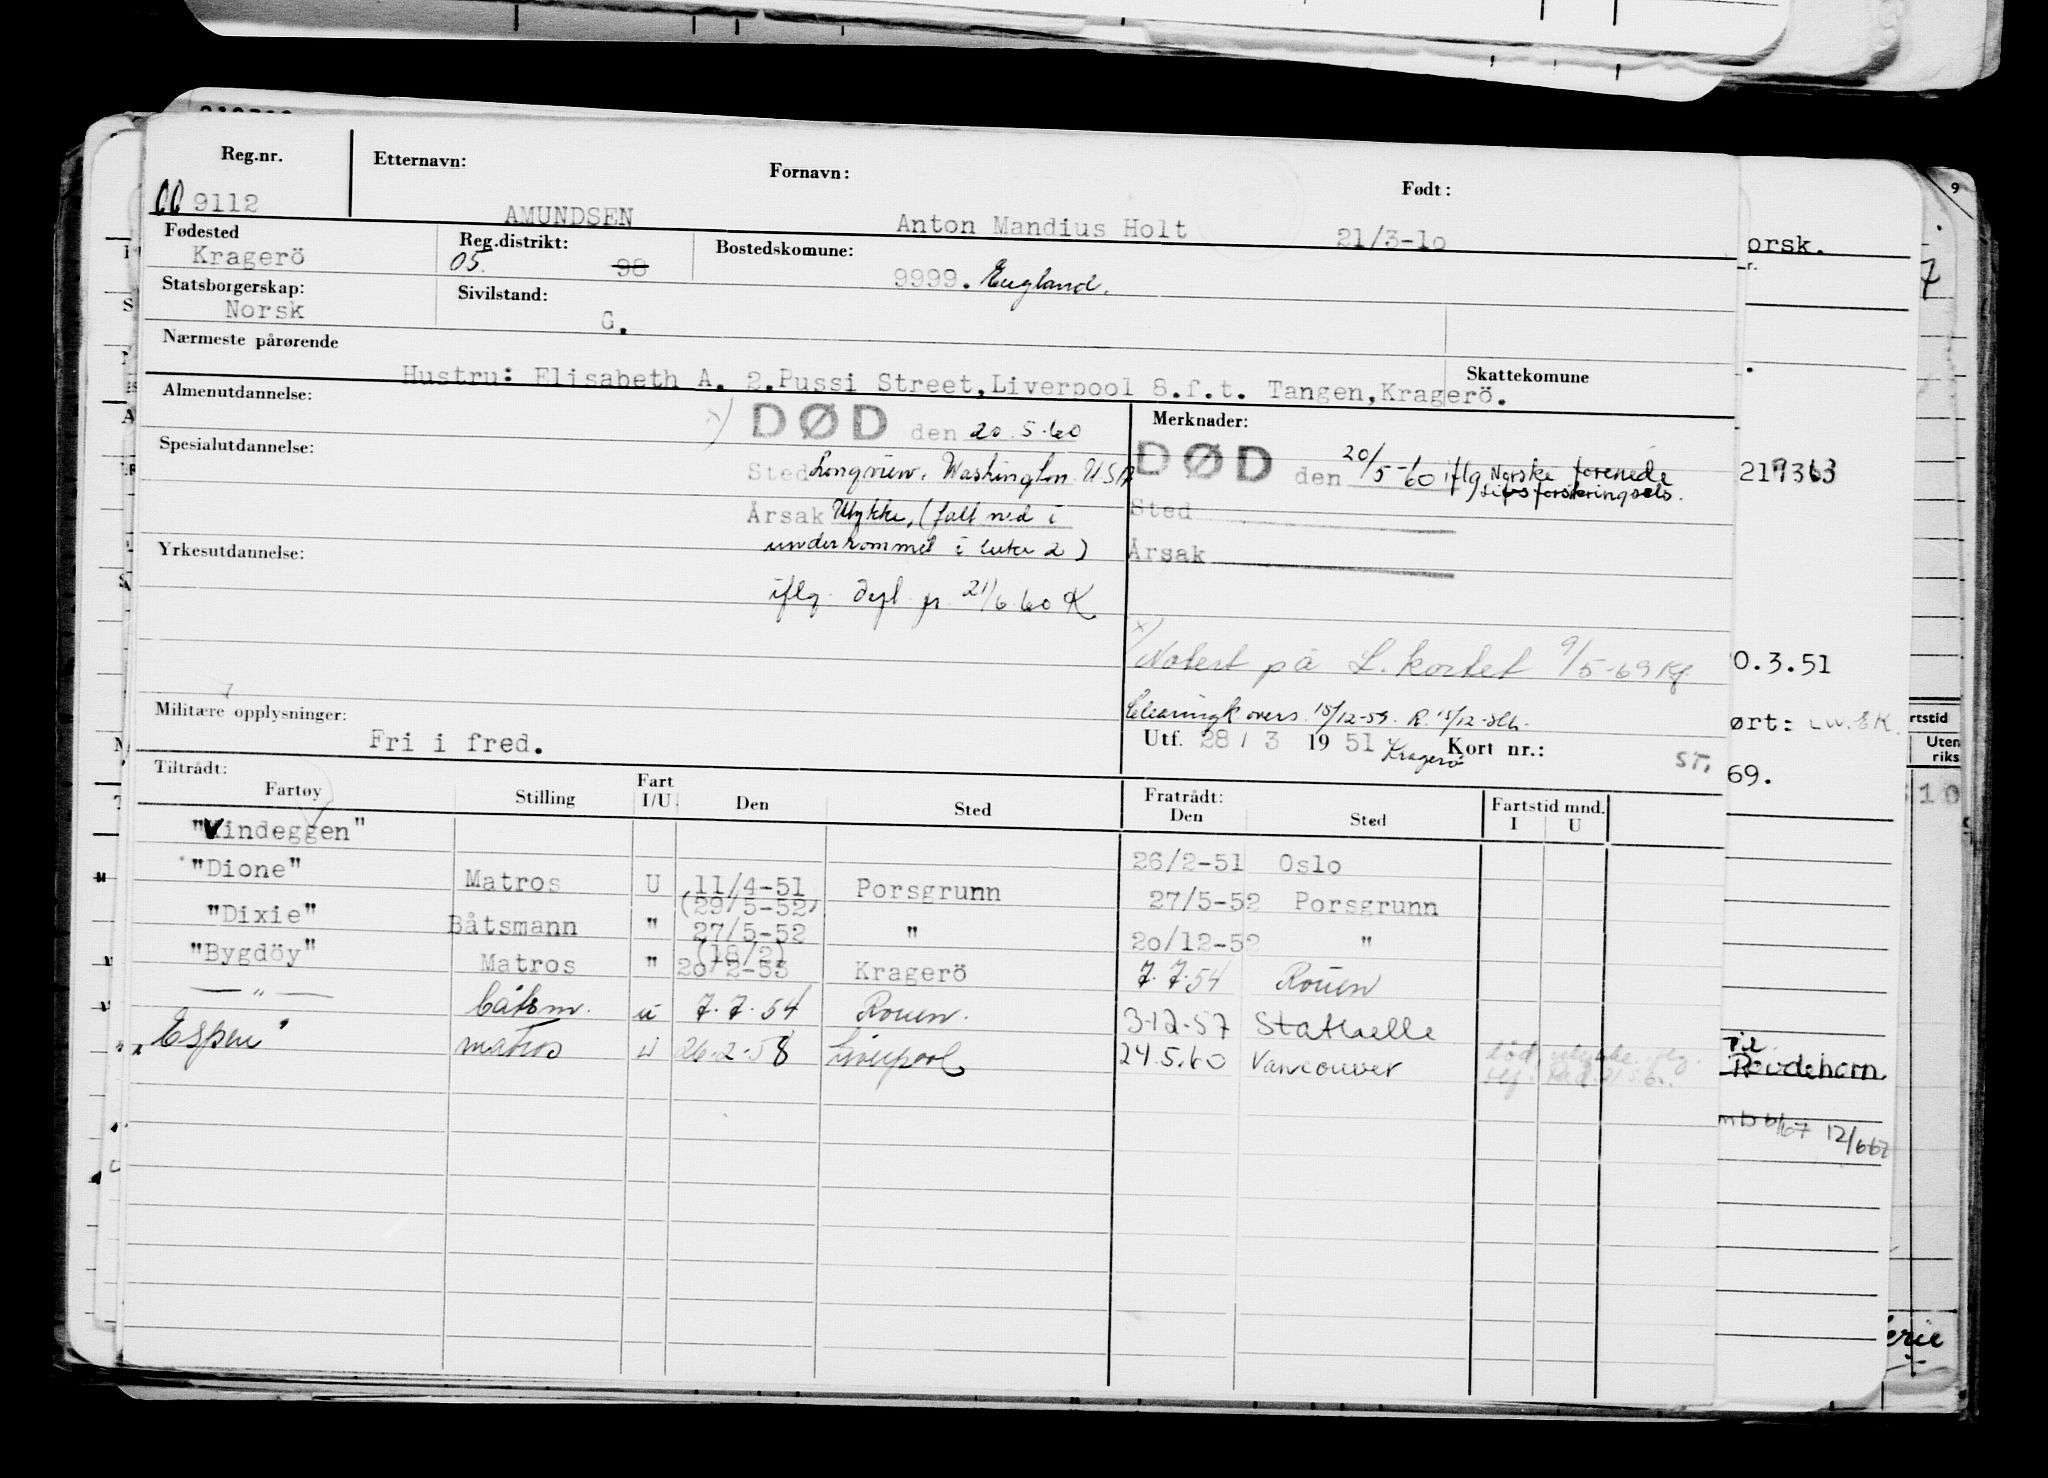 Reg.nr. Etternavn: Fornavn: Født:
009112 AMUNDSEN Anton Mandius Holt 21/3-10
Fødested Reg.distrikt: Bostedskomune:
Kragerö 05. 98 9999. England.
Statsborgerskap: Sivilstand:
Norsk G.
Nærmeste pårørende Skattekomune
Hustru: Elisabeth A. 2.Pussi Street,Liverpool 8.f.t. Tangen,Kragerö.
Almenutdannelse: Merknader:
x) DØD den 20.5.60
DØD den 20/5-60 iflg Norske forenede
Livsforsikringsels.
Spesialutdannelse:
Sted Longview, Washington U S A
Sted
Årsak Ulykke, (falt ned i
underrommet i luke 2)
Årsak
Yrkesutdannelse:
iflg. dagl. pr. 21/6.60 K
x)
Notert på L. kortet 9/5-69 Kf
Militære opplysninger:
Fri i fred.
Clearingk overs. 15/12-59. R. 15/12-
Utf. 28/3 1951 Kragerö Kort nr.: ST.
Tiltrådt: Fratrådt:
Fartøy Stilling Fart I/U Den Sted Den Sted Fartstid mnd. I U
"Vindeggen" 26/2-51 Oslo
"Dione" Matros U 11/4-51 Porsgrunn 27/5-52 Porsgrunn
(29/5-52)
"Dixie" Båtsmann " 27/5-52 " 20/12-52 "
(18/2)
"Bygdöy" Matros " 20/2-53 Kragerö 7.7.54 Rouen
— " — båtsm. u 7.7.54 Rouen. 3-12-57 Stathelle
Espen" matros u 26.2.58 Liverpool 24.5.60 Vancouver død ulykke iflg.
orsk.
219363
0.3.51
ørt:
69.
rtstid
Uten
riks
510
Til
12/667
9